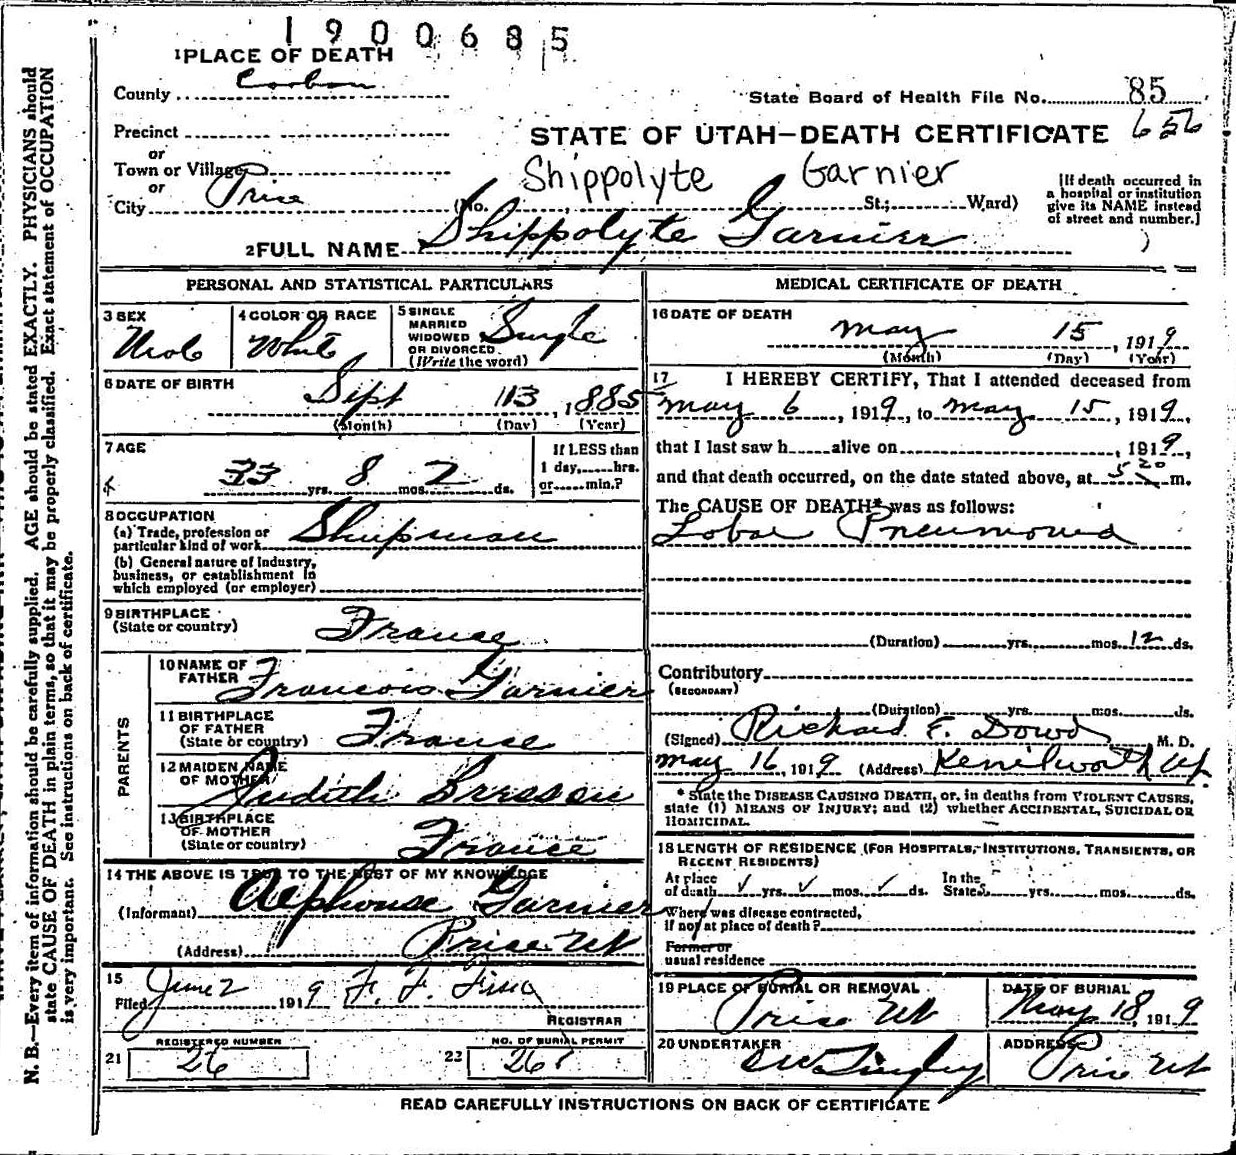 1900685
1 PLACE OF DEATH
County Carbon
State Board of Health File No. 85
Precinct
656
STATE OF UTAH—DEATH CERTIFICATE
or
Town or Village
or
Shippolyte Garnier
City Price (No. St.; Ward)
[If death occurred in
a hospital or institution
give its NAME instead
of street and number.]
2 FULL NAME Shippolyte Garnier
PERSONAL AND STATISTICAL PARTICULARS
3 SEX
Male
4 COLOR OR RACE
White
5 SINGLE
MARRIED
WIDOWED
OR DIVORCED
(Write the word)
Single
6 DATE OF BIRTH
Sept 13, 1885
(Month) (Day) (Year)
7 AGE
33 yrs. 8 mos. 2 ds.
If LESS than
1 day, hrs.
or min.?
8 OCCUPATION
(a) Trade, profession or
particular kind of work Shipman
(b) General nature of Industry,
business, or establishment in
which employed (or employer)
9 BIRTHPLACE
(State or country) France
PARENTS
10 NAME OF
FATHER Francois Garnier
11 BIRTHPLACE
OF FATHER
(State or country) France
12 MAIDEN NAME
OF MOTHER Judith
13 BIRTHPLACE
OF MOTHER
(State or country) France
14 THE ABOVE IS TRUE TO THE BEST OF MY KNOWLEDGE
(Informant) Alphonse Garnier
(Address) Price Ut
15
Filed June 2 1919 F. F. Fisk
REGISTRAR
21
REGISTERED NUMBER
26
22
NO. OF BURIAL PERMIT
26
MEDICAL CERTIFICATE OF DEATH
16 DATE OF DEATH
May 15, 1919
(Month) (Day) (Year)
17 I HEREBY CERTIFY, That I attended deceased from
May 6, 1919, to May 15, 1919,
that I last saw h alive on , 1919,
and that death occurred, on the date stated above, at 5 20 m.
The CAUSE OF DEATH* was as follows:
Lobar Pneumonia
(Duration) yrs. mos. 12 ds.
Contributory
(SECONDARY)
(Duration) yrs. mos. ds.
(Signed) Richard F. Dowd M. D.
May 16, 1919 (Address) Kenilworth Ut
* State the DISEASE CAUSING DEATH, or, in deaths from VIOLENT CAUSES,
state (1) MEANS OF INJURY; and (2) whether ACCIDENTAL, SUICIDAL OR
HOMICIDAL.
18 LENGTH OF RESIDENCE (FOR HOSPITALS, INSTITUTIONS, TRANSIENTS, OR
RECENT RESIDENTS)
At place
of death ✓ yrs. ✓ mos. ✓ ds.
In the
State yrs. mos. ds.
Where was disease contracted,
if not at place of death?
Former or
usual residence
19 PLACE OF BURIAL OR REMOVAL
Price Ut
DATE OF BURIAL
May 18, 1919
20 UNDERTAKER
ADDRESS
Price Ut
READ CAREFULLY INSTRUCTIONS ON BACK OF CERTIFICATE
N. B.—Every item of information should be carefully supplied. AGE should be stated EXACTLY. PHYSICIANS should
state CAUSE OF DEATH in plain terms, so that it may be properly classified. Exact statement of OCCUPATION
is very important. See instructions on back of certificate.